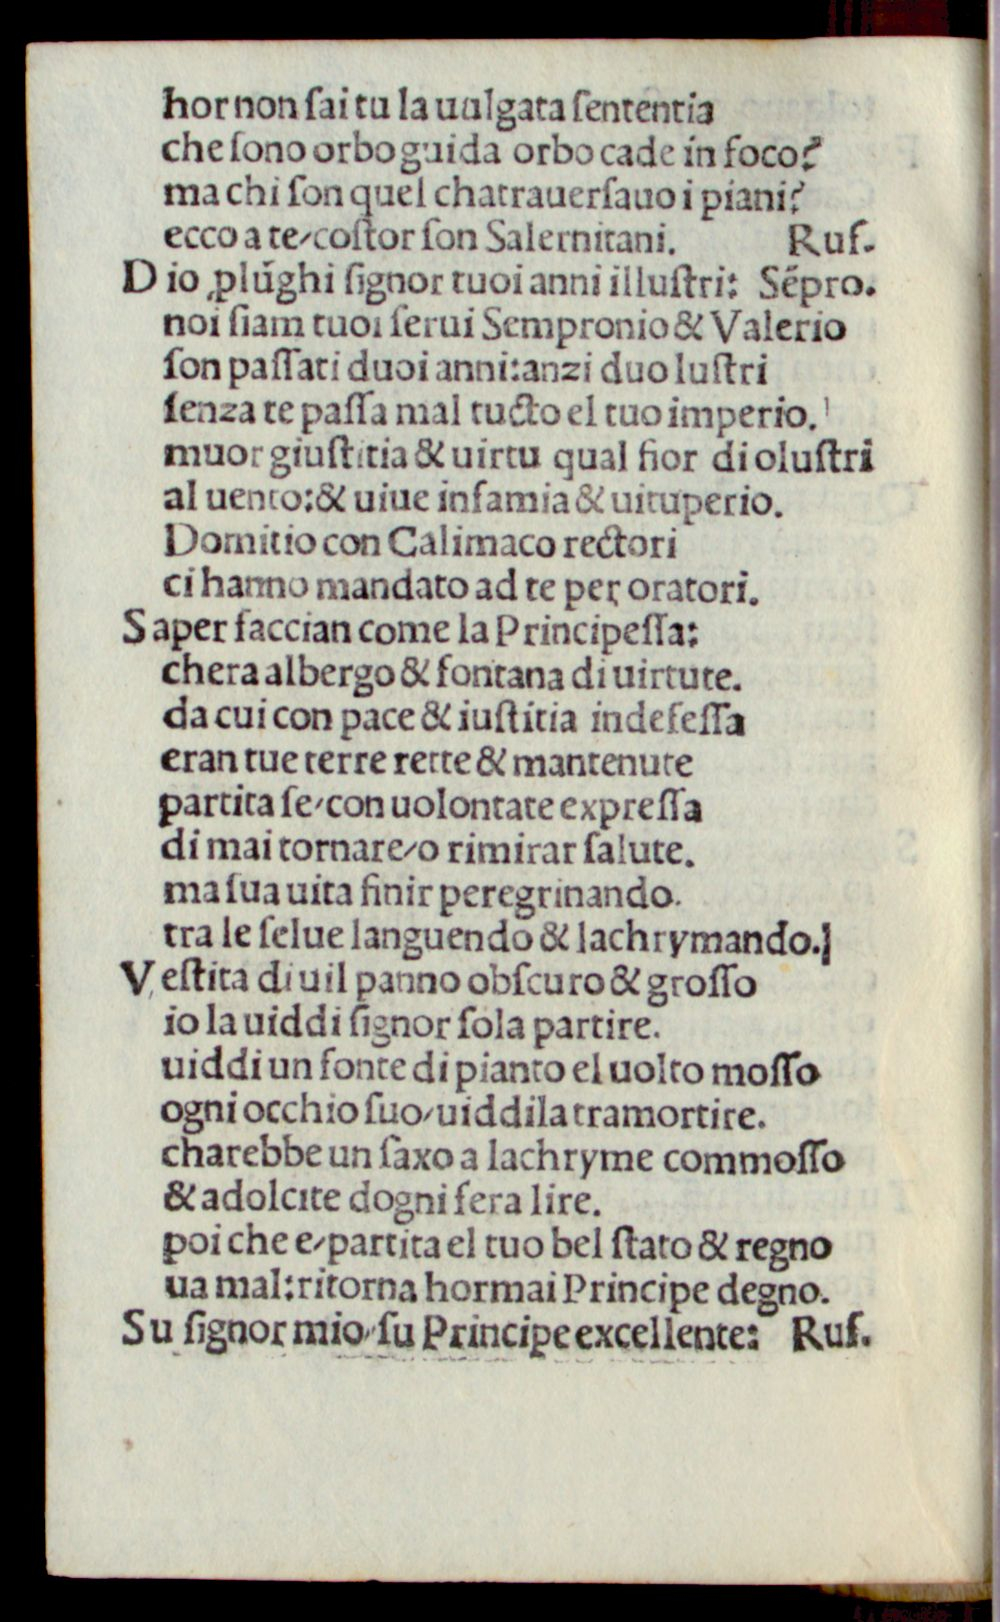 hor non ſai tu la uulgata ſententia
che ſono orbo guida orbo cade in foco?
ma chi ſon quel chatrauerſauo i piani?
ecco a te/coſtor ſon Salernitani. Ruf.
Dio ꝓlúghi ſignor tuoi anni illuſtri: Sēpro.
noi ſiam tuoi ſerui Sempronio & Valerio
ſon paſſati duoi anni:anzi duo luſtri
ſenza te paſſa mal tucto el tuo imperio.
muor giuſtitia & uirtu qual fior di oluſtri
al uento:& uiue infamia & uituperio.
Domitio con Calimaco rectori
ci hanno mandato ad te per oratori.
Saper faccian come la Principeſſa:
chera albergo & fontana di uirtute.
da cui con pace & iuſtitia indefeſſa
eran tue terre rette & mantenute
partita ſe/con uolontate expreſſa
di mai tornare/o rimirar ſalute.
ma ſua uita finir peregrinando.
tra le ſelue languendo & lachrymando.
Veſtita di uil panno obſcuro & groſſo
io la uiddi ſignor ſola partire.
uiddi un fonte di pianto el uolto moſſo
ogni occhio ſuo/uiddila tramortire.
charebbe un ſaxo a lachryme commoſſo
& adolcite dogni fera lire.
poi che e/partita el tuo bel ſtato & regno
ua mal:ritorna hormai Principe degno.
Su ſignor mio/ſu Principe excellente: Ruf.